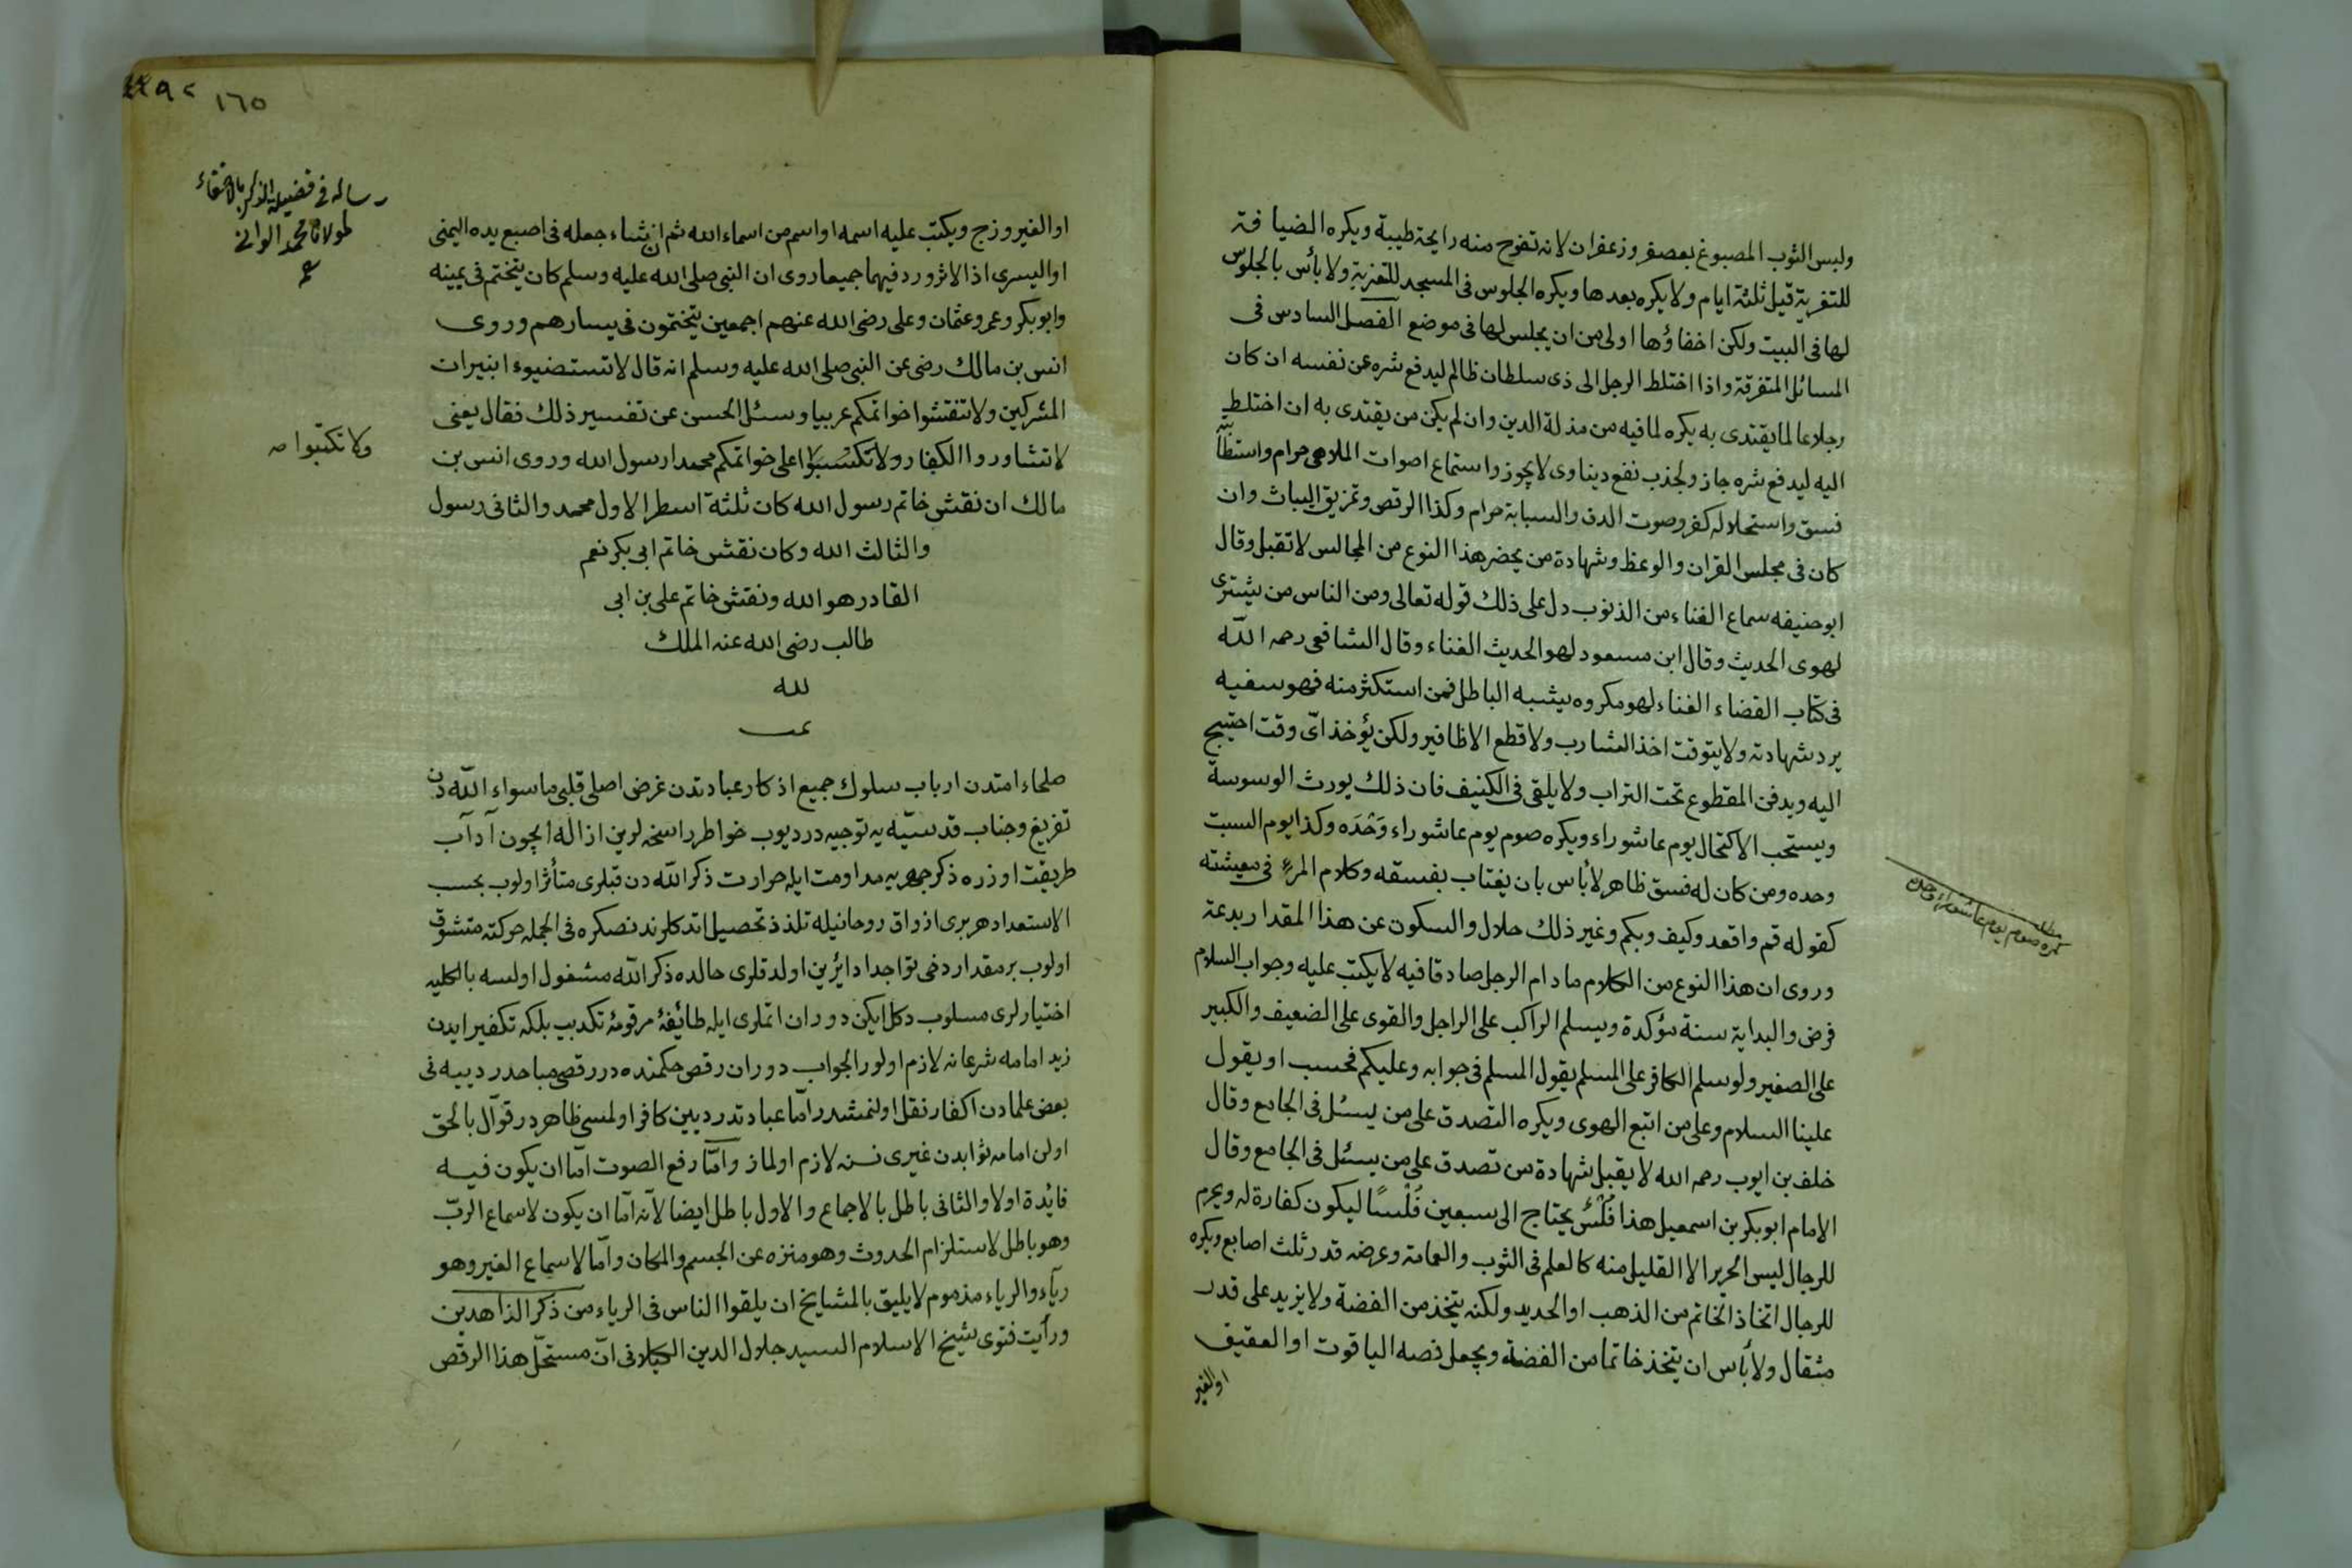 ولبس الثوب المصبوغ بعصفر وزعفران لانه تفوح منه رايحة طيبة ويكره الضيافة
للتعزية قبل ثلثة ايام ولا يكره بعدها ويكره الجلوس فى المسجد للتعزية ولا بأس بالجلوس
لها فى البيت ولكن اخفاؤها اولى من ان يجلس لها فى موضع الفصل السادس فى
المسائل المتفرقة واذا اختلط الرجل الى ذى سلطان ظالم ليدفع شره عن نفسه ان كان
رجلا عالما يقتدى به يكره لما فيه من مذلة الدين وان لم يكن من يقتدى به ان اختلط
اليه ليدفع شره جاز ولجذب نفع ديناوى لا يجوز واستماع اصوات الملاهى حرام
فسق واستحلاله كفر وصوت الدف والسبابة حرام وكذا الرقص وتمزيق الثياب وان
كان فى مجلس القران والوعظ وشهادة من يحضر هذا النوع من المجالس لا تقبل وقال
ابو حنيفه سماع الغناء من الذنوب دل على ذلك قوله تعالى ومن الناس من يشترى
لهوى الحديث وقال ابن مسعود لهو الحديث الغناء وقال الشافعى رحمه الله
فى كتاب القضاء الغناء لهو مكروه يشبه الباطل فمن استكثر منه فهو سفيه
يرد شهادته ولا يتوقت اخذ الشارب ولا قطع الاظافير ولكن يؤخذ اىّ وقت احتيج
اليه ويدفن المقطوع تحت التراب ولا يلقى فى الكنيف فان ذلك يورث الوسوسة
ويستحب الاكتحال يوم عاشوراء ويكره صوم يوم عاشوراء وَحْدَه وكذا يوم السبت
وحده ومن كان له فسق ظاهر لا بأس بان يغتاب بفسقه وكلام المرء فى معيشته
كقوله قم واقعد وكيف وبكم وغير ذلك حلال والسكون عن هذا المقدار بدعة
وروى ان هذا النوع من الكلام ما دام الرجل صادقا فيه لا يكتب عليه وجواب السلام
فرض والبداية سنة مؤكدة ويسلم الراكب على الراجل والقوى على الضعيف والكبير
على الصغير ولو سلم الكافر على المسلم يقول المسلم فى جوابه وعليكم فحسب او يقول
علينا السلام وعلى من اتبع الهوى ويكره التصدق على من يسئل فى الجامع وقال
خلف بن ايوب رحمه الله لا يقبل شهادة من تصدق على من يسئل فى الجامع وقال
الامام ابو بكر بن اسمعيل هذا فُلْسٌ يحتاج الى سبعين فُلْسًا ليكون كفارة له ويحرم
للرجال لبس الحرير الا القليل منه كالعلم فى الثوب والعمامة وعرضه قدر ثلث اصابع ويكره
للرجال اتخاذ الخاتم من الذهب او الحديد ولكنه يتخذ من الفضة ولا يزيد على قدر
مثقال ولا بأس ان يتخذ خاتما من الفضة ويجعل فصه الياقوت او العقيق
او الفير
مطلب
يكره صوم يوم عاشوراء وحده
١٦٥
رساله فى فضيلة الذكر بالاخفاء
لمولانا محمد الوانى
او الفيروزج ويكتب عليه اسمه او اسم من اسماء الله ثم ان شاء جعله فى اصبع يده اليمنى
او اليسرى اذ الاثر ورد فيهما جميعا روى ان النبى صلى الله عليه وسلم كان يتختم فى يمينه
وابو بكر وعمر وعثمان وعلى رضى الله عنهم اجمعين يتختمون فى يسارهم وروى
انس بن مالك رضى عن النبى صلى الله عليه وسلم انه قال لا تستضيوء ا بنيران
المشركين ولا تنقشوا خواتمكم عربيا وسئل الحسن عن تفسير ذلك فقال يعنى
لا تشاوروا الكفار ولا تكتبوا على خواتمكم محمدا رسول الله وروى انس بن
ولا تكتبوا صه
مالك ان نقش خاتم رسول الله كان ثلثة اسطر الاول محمد والثانى رسول
والثالث الله وكان نقش خاتم ابى بكر نعم
القادر هو الله ونقش خاتم على بن ابى
طالب رضى الله عنه الملك
لله
تمت
صلحاء امتدن ارباب سلوك جميع اذكار عبادتدن غرض اصلى قلبى ما سواء اللّه دن
تفريغ وجناب قدسيّه يه توجيه در ديوب خواطر راسخه لرين ازاله ايچون آدآب
طريقت اوزره ذكر جهريه مداومت ايله حرارت ذكر اللّه دن قبلرى متأثر اولوب بحسب
الاستعداد هر برى اذواق روحانيله تلذذ تحصيل اتدكلرند نصكره فى الجمله حركته متشوق
اولوب بر مقدار دخى تواجدا دائرين اولدقلرى حالده ذكر اللّه مشغول اولسه بالكليه
اختيارلرى مسلوب دكل ايكن دوران اتملرى ايله طائفۀ مرقومۀ تكذيب بلكه تكفير ايدن
زيد امامه شرعا نه لازم اولور الجواب دوران رقص حكمنده در رقصى مباحدر ديبه فى
بعض علمادن اكفار نقل اولنمشدر امّا عبادتدر ديين كافر اولمسى ظاهر در قوّال بالحق
اولن امامه ثوابدن غيرى نسنه لازم اولماز وامّا رفع الصوت امّا ان يكون فيه
فائدة اولا والثانى باطل بالاجماع والاول باطل ايضا لانّه امّا ان يكون لاسماع الربّ
وهو باطل لاستلزام الحدوث وهو منزه عن الجسم والمكان وامّا لاسماع الغير وهو
ريآء والرياء مذموم لا يليق بالمشايخ ان يلقوا الناس فى الرياء من ذكر الذاهدين
ورأيت فتوى شيخ الاسلام السيد جلال الدين الكيلانى انّ مستحلّ هذا الرقص